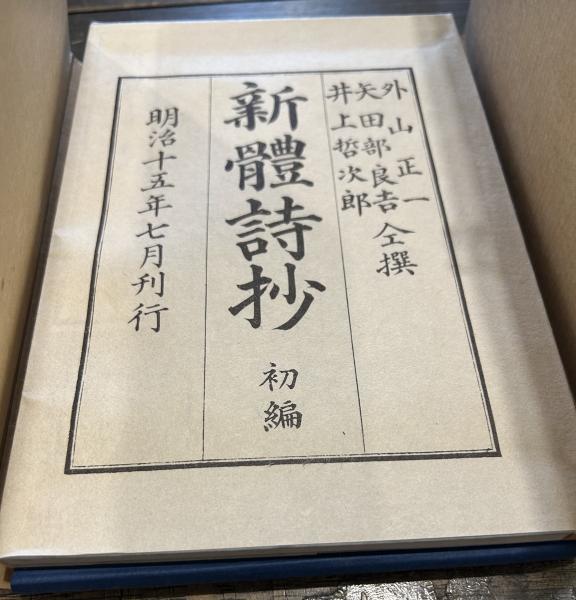 外山正一
矢田部良吉仝撰
井上哲次郎
新體詩抄初編
明治十五年七月刊行